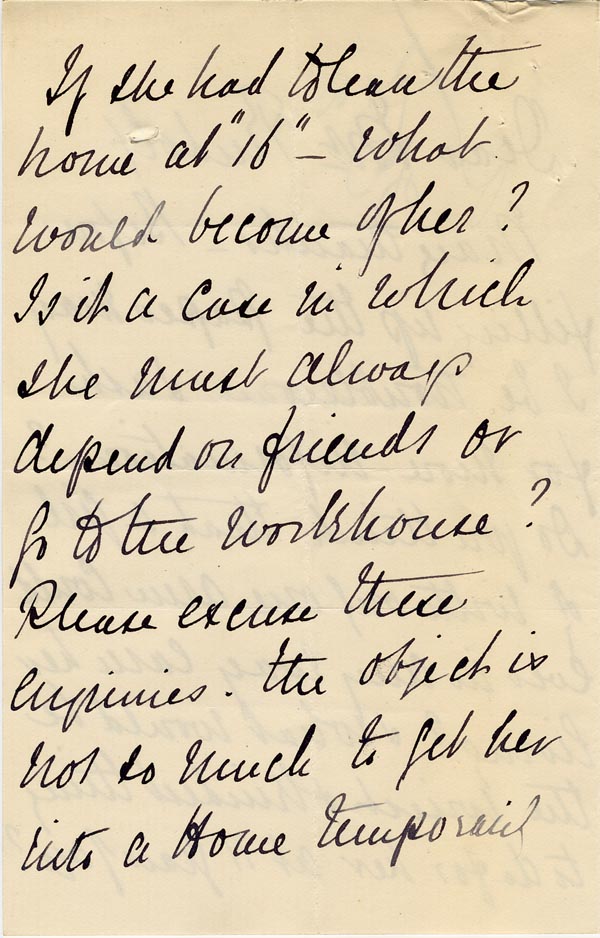 If she had to leave the
home at "16" – What
would become of her?
Is it a Case in which
she must always
depend on friends or
go to the Workhouse?
Please excuse these
enquiries. The object is
not so much to get her
into a Home temporarily